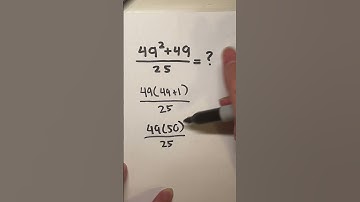 49²+49
25
= ?
49(49+1)
25
49(50)
25